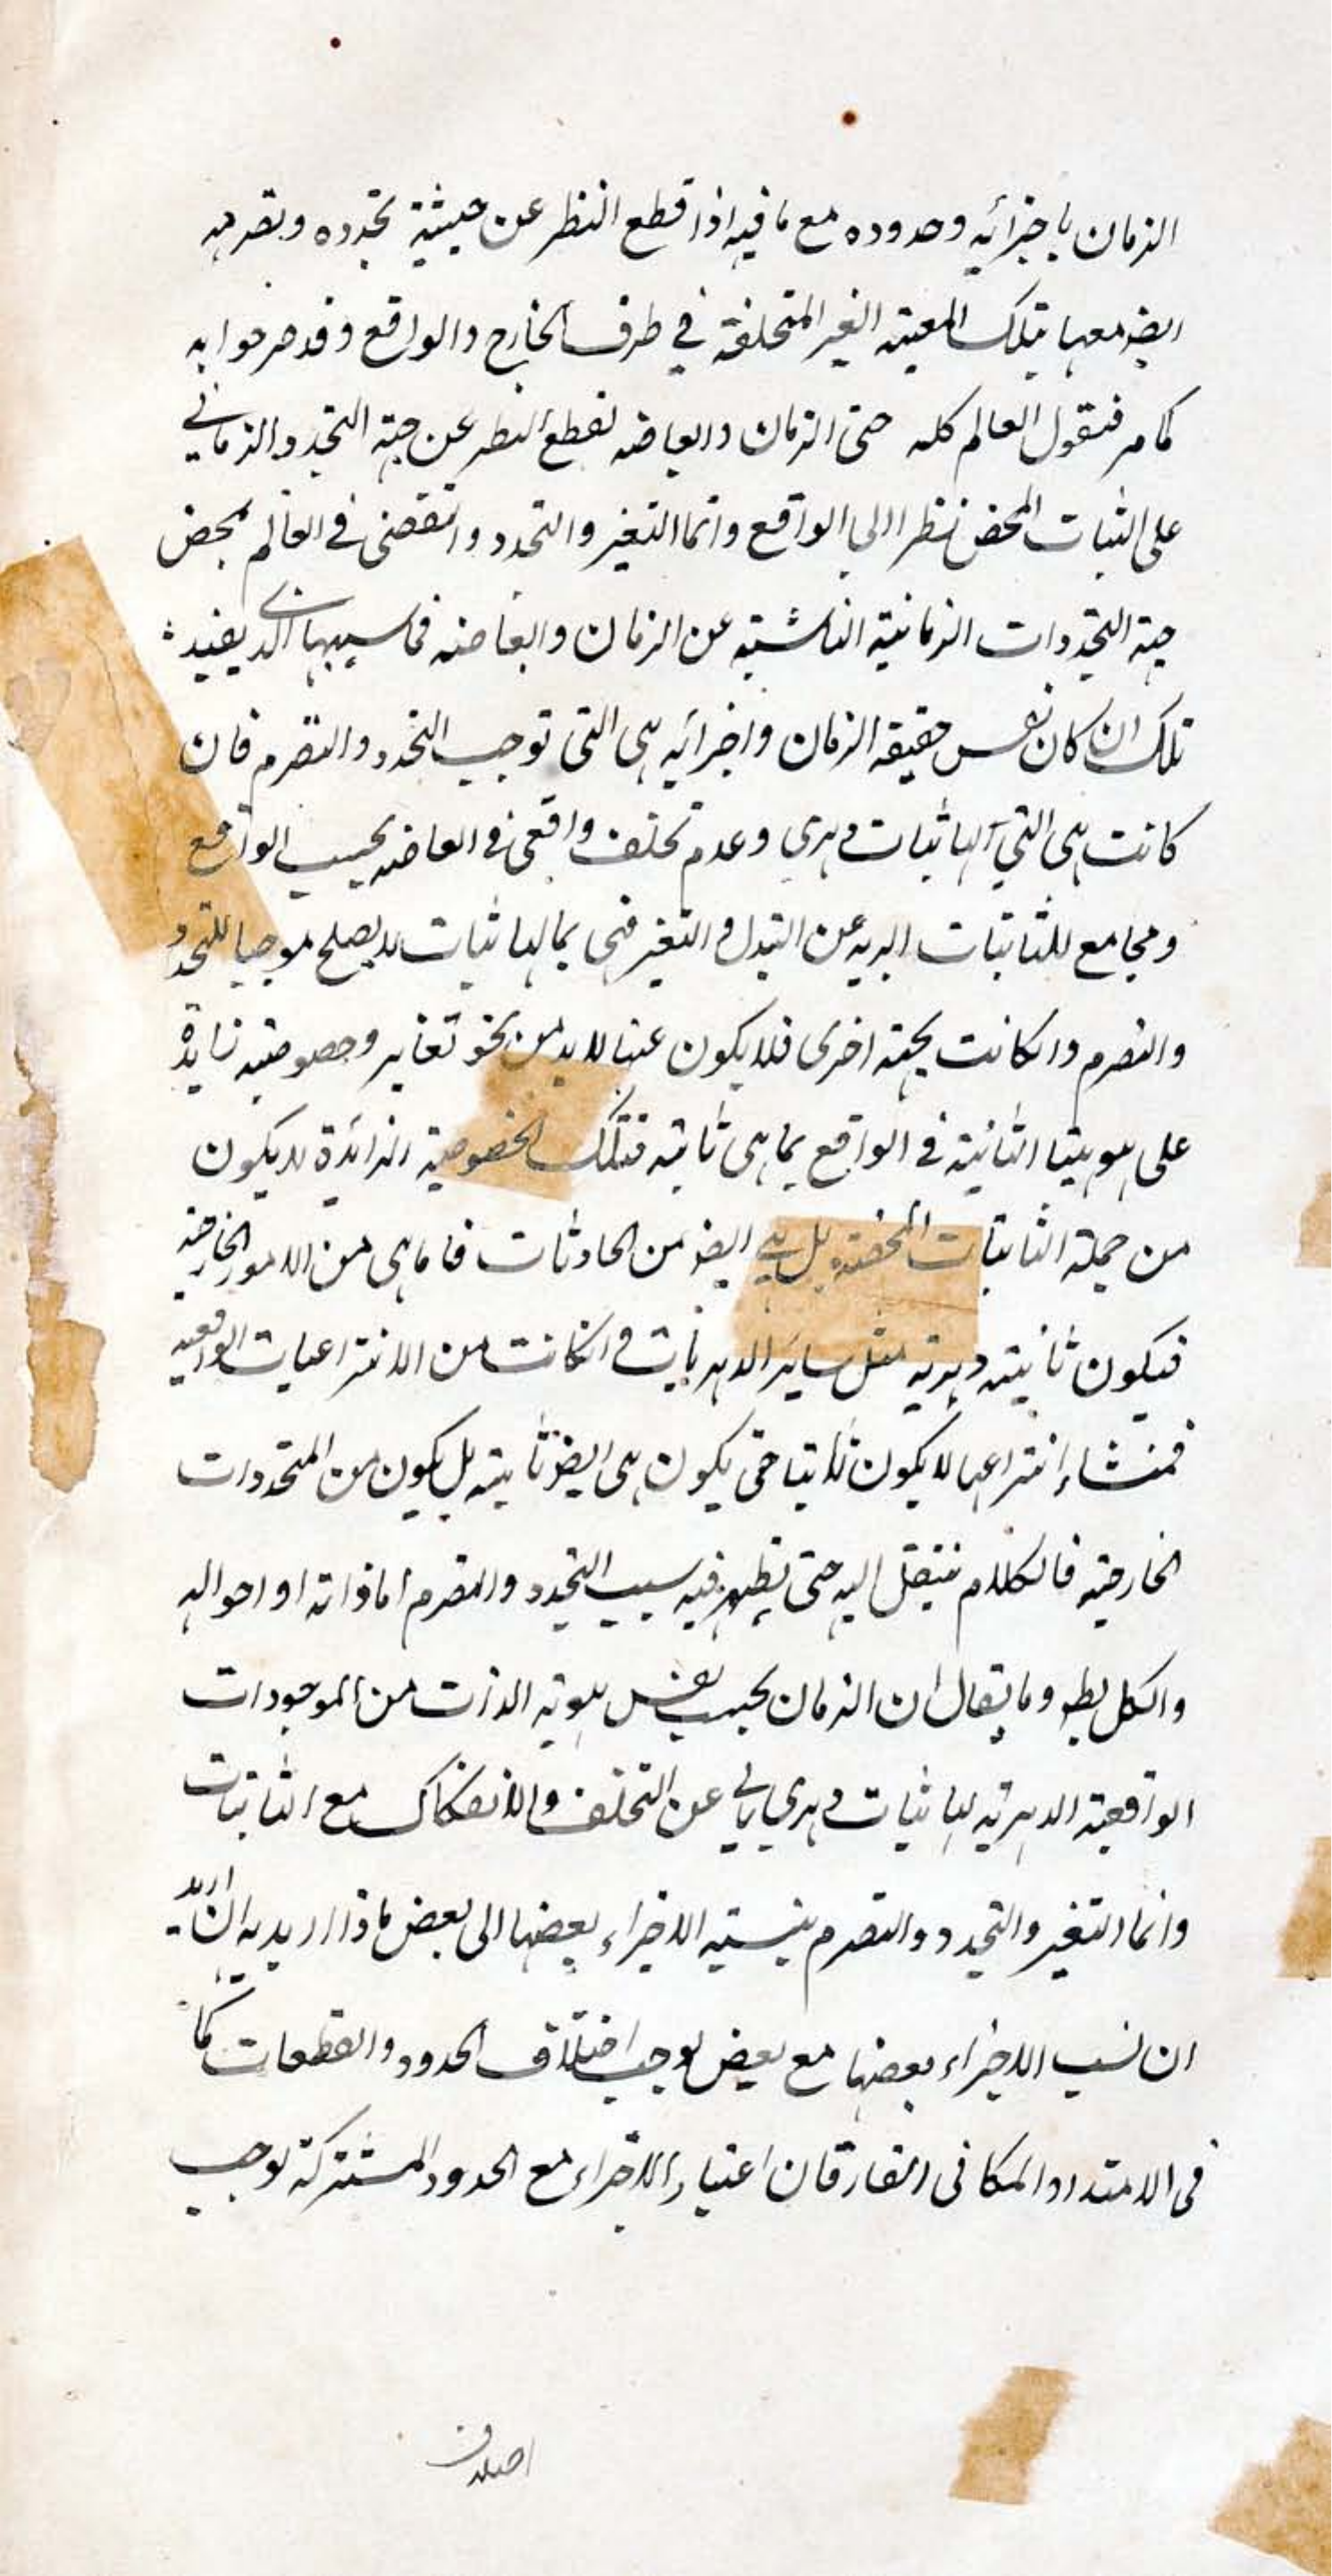 الزمان باجزائه وحدوده مع ما فيه اذا قطع النظر عن حيثية تجدده وتصرمه
ايضا معها بتلك المعية الغير المتخلفة في ظرف الخارج والواقع وقد صرحوا به
كما مر فنقول العالم كله حتى الزمان وابعاضه لقطع النظر عن جهة التجدد الزماني
على الثبات المحض نظرا الى الواقع وانما التغير والتجدد والتقضى في العالم بمحض
جهة التجددات الزمانية الناشية عن الزمان وابعاضه فما سببها الذي يفيد
تلك ان كان نفس حقيقة الزمان واجزائه هى التي توجب التجدد والتصرم فان
كانت هى التي لها ثبات دهري وعدم تخلف واقعى في ابعاضه بحسب الواقع
ومجامع للثابتات البريه عن التبدل والتغير فهى بما لها ثبات لا يصلح موجبا للتجدد
والتصرم وان كانت بجهة اخرى فلا يكون عينا لا بد من نحو تغاير وخصوصية زايدة
على هويتها الثابتة في الواقع بما هى ثابتة فتلك الخصوصية الزائدة لا يكون
من جملة الثابتات المحضة بل هي ايضا من الحادثات فاما هى من الامور الخارجية
فيكون ثابتة دهرية مثل ساير الدهريات وان كانت من الانتزاعيات الواقعية
فمنشاء انتزاعها لا يكون ثابتا حتى يكون هى ايضا ثابتة بل يكون من المتجددات
الخارجية فالكلام ينتقل اليه حتى يظهر فيه سبب التجدد والتصرم اما ذاته او احواله
والكل بط وما يقال ان الزمان بحسب نفس هويته الذات من الموجودات
الواقعية الدهرية لها ثبات دهري يابى عن التخلف والانفكاك مع الثابتات
وانما التغير والتجدد والتصرم بنسبة الاجزاء بعضها الى بعض ماذا اريد به ان اريد
ان نسب الاجزاء بعضها مع بعض يوجب اختلاف الحدود والقطعات كما
في الامتداد المكانى القار فان اعتبار الاجزاء مع الحدود المشتركة يوجب
اختلاف